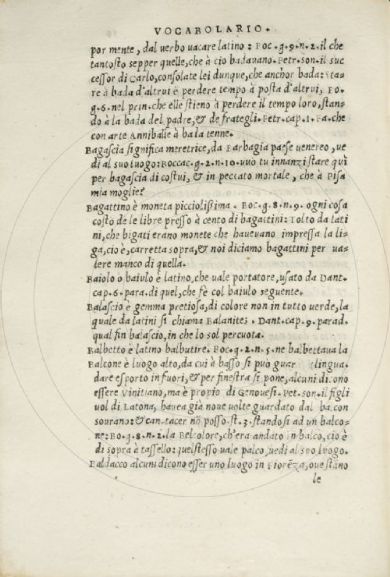 VOCABOLARIO.
por mente, dal verbo uacare latino: BOC. g.9.n.2. il che
tantosto sepper quelle, che à ciò badauano. Petr. son. il suc
cessor di Carlo, consolate lei dunque, che anchor bada: sta
re à bada d'altrui è perdere tempo à posta d'altrui, BO.
g.6.nel prin. che elle stieno à perdere il tempo loro, stan
do à la bada del padre, & de frategli. Petr.cap.1.Fa.che
con arte Annibàlle à bala tenne.
Bagascia significa meretrice, da Barbagia paese uenereo, ue
di al suo luogo: Boccac.g.2.n.10. uuo tu innanzi stare qui
per bagascia di costui, & in peccato mortale, che à Pisa
mia moglie?
Bagattino è moneta picciolissima. BOC.g.8.n.9. ogni cosa
costo de le libre presso à cento di bagattini: Tolto da lati
ni, che bigati erano monete che haueuano impressa la li
ga, cio è, carretta sopra, & noi diciamo bagattini per ua
lere manco di quella.
Baiolo o baiulo è latino, che uale portatore, usato da Dant.
cap.6.para. di quel, che fè col baiulo seguente.
Balascio è gemma pretiosa, di colore non in tutto verde, la
quale da latini si chiama Balanites. Dant.cap.9.parad.
qual fin balascio, in che lo sol percuota.
Balbetto è latino balbutire. BOC.g.2.n.5. ne balbettaua la
Balcone è luogo alto, da cui à basso si può guar lingua.
dare esporto in fuori, & per finestra si pone, alcuni di ono
essere Vinitiano, ma è propio di Genouesi. Pet. son. il figli
uol di Latona, hauea già noue uolte guardato dal balcon
sourano: & can. tacer nõ posso. st.3. standosi ad un balco-
ne: BO.g.8.n.2. la Belcolore, ch'era andata in balco, cio è
di sopra à tassello: quel stesso uale palco, uedi al suo luogo.
Baldacco alcuni dicono esser uno luogo in Fiorẽza, oue stano
le